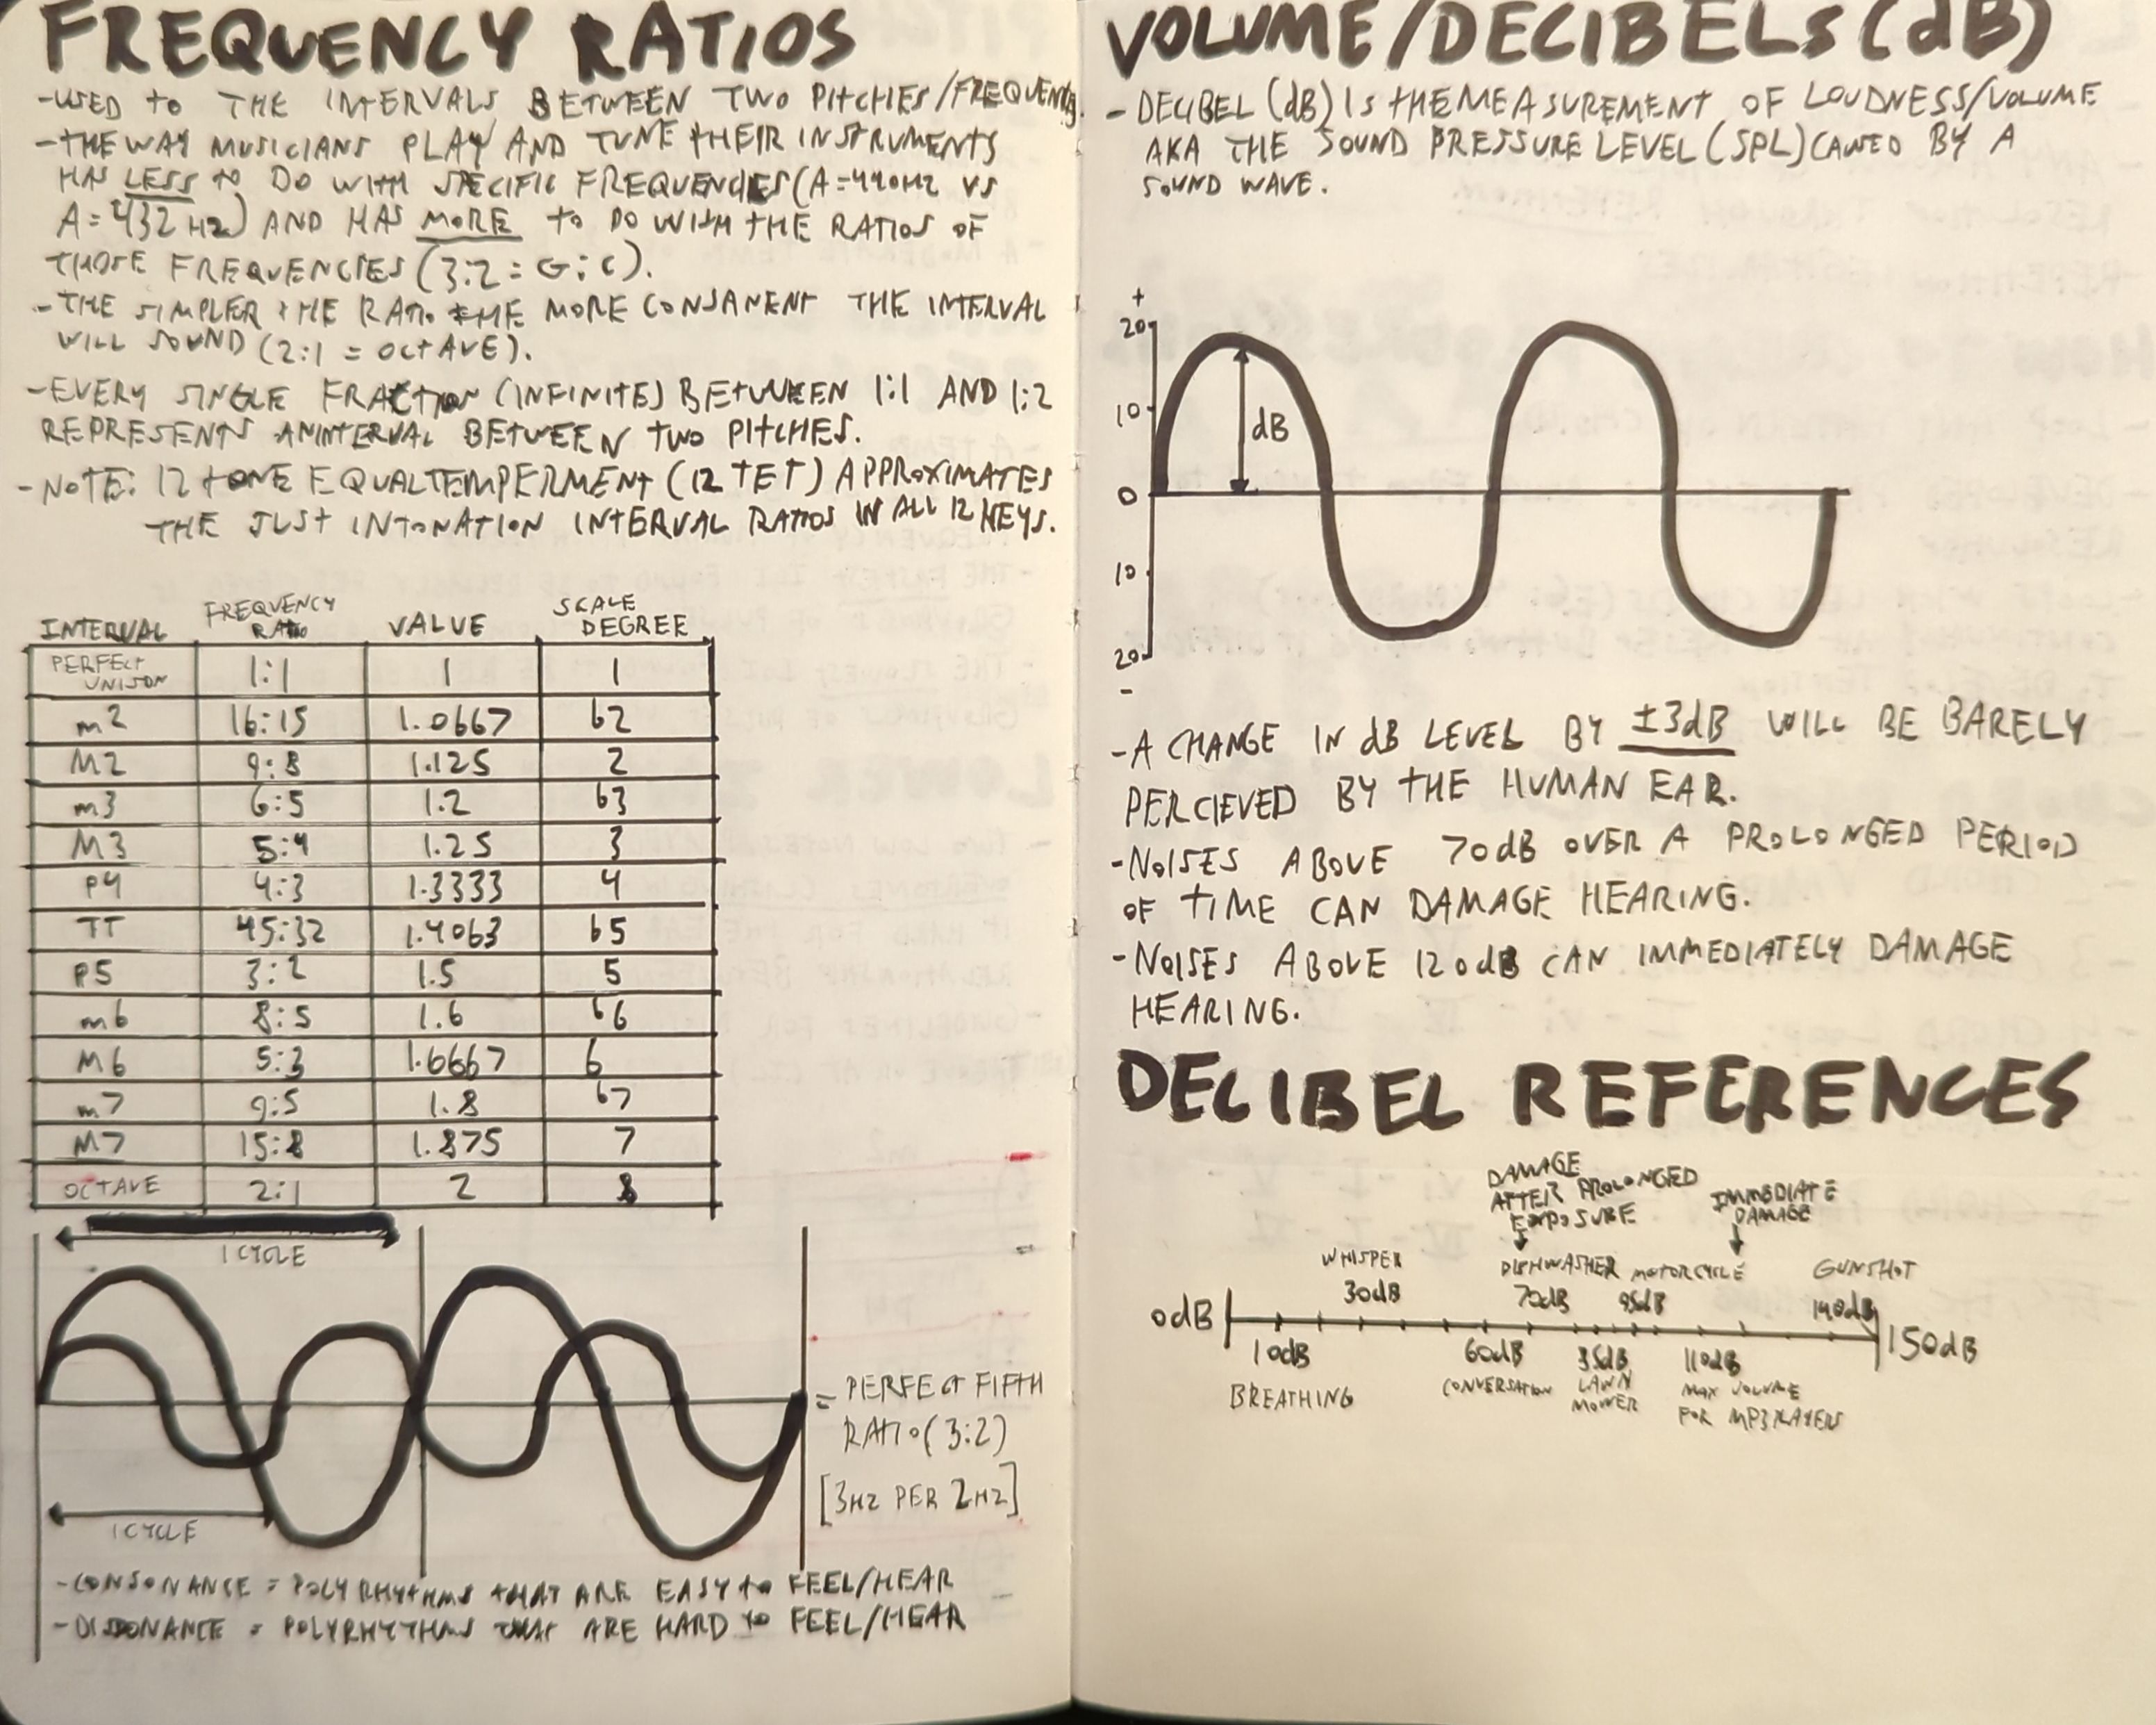 FREQUENCY RATIOS
-USED TO THE INTERVALS BETWEEN TWO PITCHES/FREQUENCIES.
-THE WAY MUSICIANS PLAY AND TUNE THEIR INSTRUMENTS
HAS LESS TO DO WITH SPECIFIC FREQUENCIES (A=440HZ VS
A=432HZ) AND HAS MORE TO DO WITH THE RATIOS OF
THOSE FREQUENCIES (3:2 = G:C).
-THE SIMPLER THE RATIO THE MORE CONSANENT THE INTERVAL
WILL SOUND (2:1 = OCTAVE).
-EVERY SINGLE FRACTION (INFINITE) BETWEEN 1:1 AND 1:2
REPRESENTS AN INTERVAL BETWEEN TWO PITCHES.
-NOTE: 12 TONE EQUAL TEMPERMENT (12 TET) APPROXIMATES
THE JUST INTONATION INTERVAL RATIOS IN ALL 12 KEYS.
INTERVAL FREQUENCY RATIO VALUE SCALE DEGREE
PERFECT UNISON 1:1 1 1
m2 16:15 1.0667 b2
M2 9:8 1.125 2
m3 6:5 1.2 b3
M3 5:4 1.25 3
P4 4:3 1.3333 4
TT 45:32 1.4063 b5
P5 3:2 1.5 5
m6 8:5 1.6 b6
M6 5:3 1.6667 6
m7 9:5 1.8 b7
M7 15:8 1.875 7
OCTAVE 2:1 2 8
1 CYCLE
= PERFECT FIFTH
RATIO (3:2)
[3HZ PER 2HZ]
1 CYCLE
-CONSONANCE = POLYRHYTHMS THAT ARE EASY TO FEEL/HEAR
-DISSONANCE = POLYRHYTHMS THAT ARE HARD TO FEEL/HEAR
VOLUME/DECIBELS (dB)
-DECIBEL (dB) IS THE MEASUREMENT OF LOUDNESS/VOLUME
AKA THE SOUND PRESSURE LEVEL (SPL) CAUSED BY A
SOUND WAVE.
+
20
10
dB
0
10
20
-
-A CHANGE IN dB LEVEL BY ±3dB WILL BE BARELY
PERCIEVED BY THE HUMAN EAR.
-NOISES ABOVE 70dB OVER A PROLONGED PERIOD
OF TIME CAN DAMAGE HEARING.
-NOISES ABOVE 120dB CAN IMMEDIATELY DAMAGE
HEARING.
DECIBEL REFERENCES
DAMAGE
AFTER PROLONGED
EXPOSURE
IMMEDIATE
DAMAGE
WHISPER DISHWASHER MOTORCYCLE GUNSHOT
30dB 70dB 95dB 140dB
0dB 150dB
10dB 60dB 85dB 110dB
BREATHING CONVERSATION LAWN MOWER MAX VOLUME
FOR MP3 PLAYERS